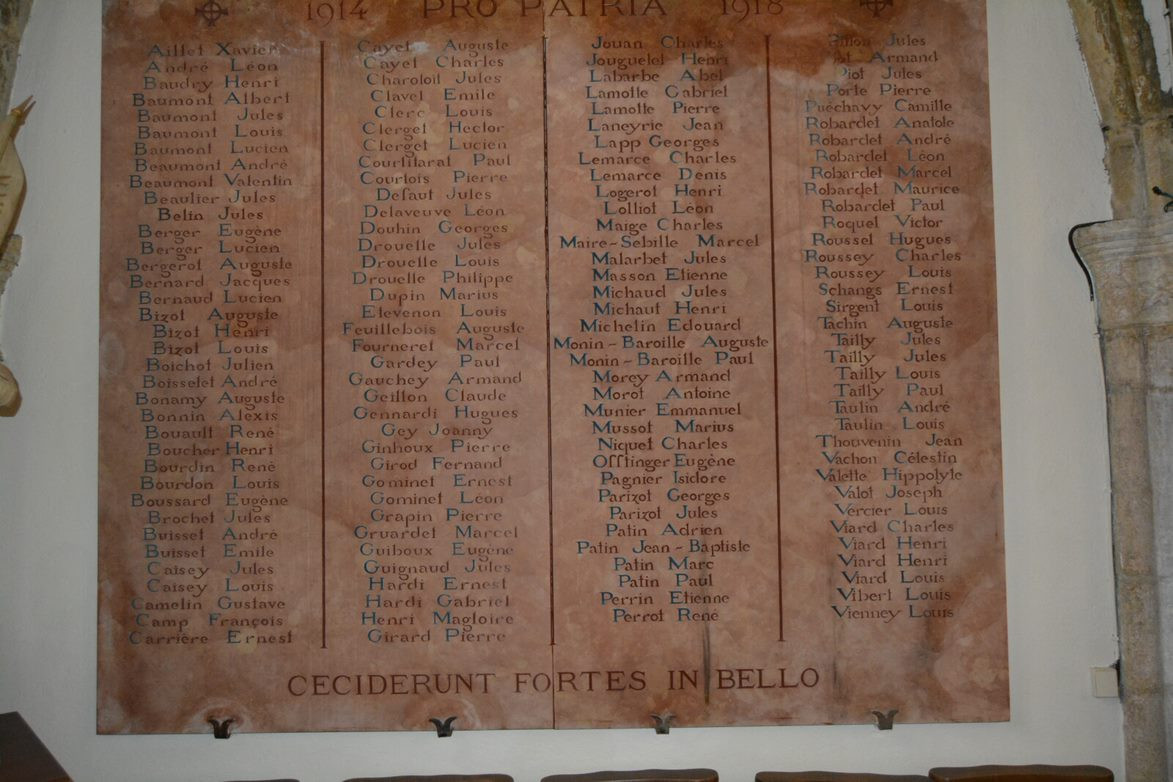 1914 PRO PATRIA 1918
Aillet Xavier
André Léon
Baudry Henri
Baumont Albert
Baumont Jules
Baumont Louis
Baumont Lucien
Beaumont André
Beaumont Valentin
Beaulier Jules
Belin Jules
Berger Eugène
Berger Lucien
Bergerot Auguste
Bernard Jacques
Bernaud Lucien
Bizot Auguste
Bizot Henri
Bizot Louis
Boichot Julien
Boisselet André
Bonamy Auguste
Bonnin Alexis
Bouault René
Boucher Henri
Bourdin René
Bourdon Louis
Boussard Eugène
Brochet Jules
Buisset André
Buisset Emile
Caisey Jules
Caisey Louis
Camelin Gustave
Camp François
Carrière Ernest
Cayet Auguste
Cayet Charles
Charoloil Jules
Clavel Emile
Clerc Louis
Clerget Hector
Clerget Lucien
Courtilarat Paul
Courtois Pierre
Defaut Jules
Delaveuve Léon
Douhin Georges
Drouelle Jules
Drouelle Louis
Drouelle Philippe
Dupin Marius
Etevenon Louis
Feuillebois Auguste
Fourneret Marcel
Gardey Paul
Gauchey Armand
Geillon Claude
Gennardi Hugues
Gey Joanny
Ginhoux Pierre
Girod Fernand
Gominet Ernest
Gominet Léon
Grapin Pierre
Gruardet Marcel
Guiboux Eugène
Guignaud Jules
Hardi Ernest
Hardi Gabriel
Henri Magloire
Girard Pierre
Jouan Charles
Jouguelet Henri
Labarbe Abel
Lamotte Gabriel
Lamotte Pierre
Laneyrie Jean
Lapp Georges
Lemarce Charles
Lemarce Denis
Logerot Henri
Lolliot Léon
Maige Charles
Maire-Sebille Marcel
Malarbet Jules
Masson Etienne
Michaud Jules
Michaut Henri
Michelin Edouard
Monin-Baroille Auguste
Monin-Baroille Paul
Morey Armand
Morot Antoine
Munier Emmanuel
Mussot Marius
Niquet Charles
Offtinger Eugène
Pagnier Isidore
Parizot Georges
Parizot Jules
Patin Adrien
Patin Jean-Baptiste
Patin Marc
Patin Paul
Perrin Etienne
Perrot René
Jules
Armand
Piot Jules
Porte Pierre
Puéchavy Camille
Robardet Anatole
Robardet André
Robardet Léon
Robardet Marcel
Robardet Maurice
Robardet Paul
Roquel Victor
Roussel Hugues
Roussey Charles
Roussey Louis
Schangs Ernest
Sirgent Louis
Tachin Auguste
Tailly Jules
Tailly Jules
Tailly Louis
Tailly Paul
Taulin André
Taulin Louis
Thouvenin Jean
Vachon Célestin
Valette Hippolyte
Valot Joseph
Vercier Louis
Viard Charles
Viard Henri
Viard Henri
Viard Louis
Vibert Louis
Vienney Louis
CECIDERUNT FORTES IN BELLO